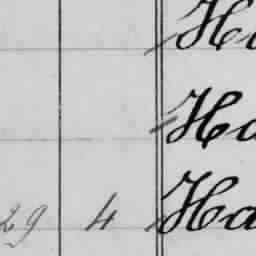 Ha
Ha
29 4 Ha